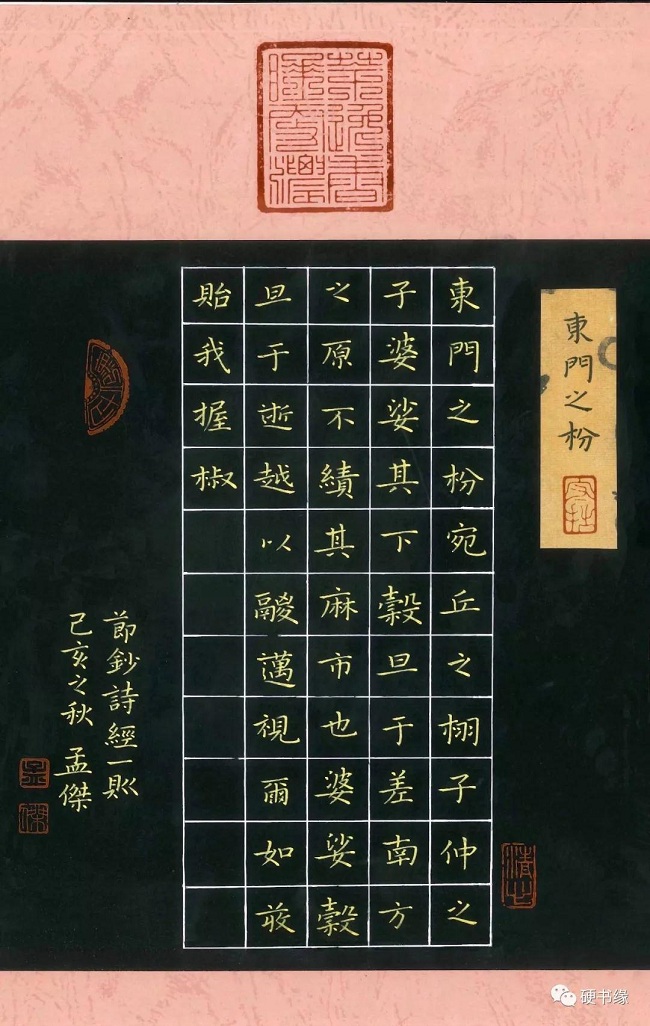 東門之枌
東門之枌宛丘之栩子仲之
子婆娑其下穀旦于差南方
之原不績其麻市也婆娑穀
旦于逝越以鬷邁視爾如荍
貽我握椒
節鈔詩經一則
己亥之秋 孟傑
孟
傑
硬书缘